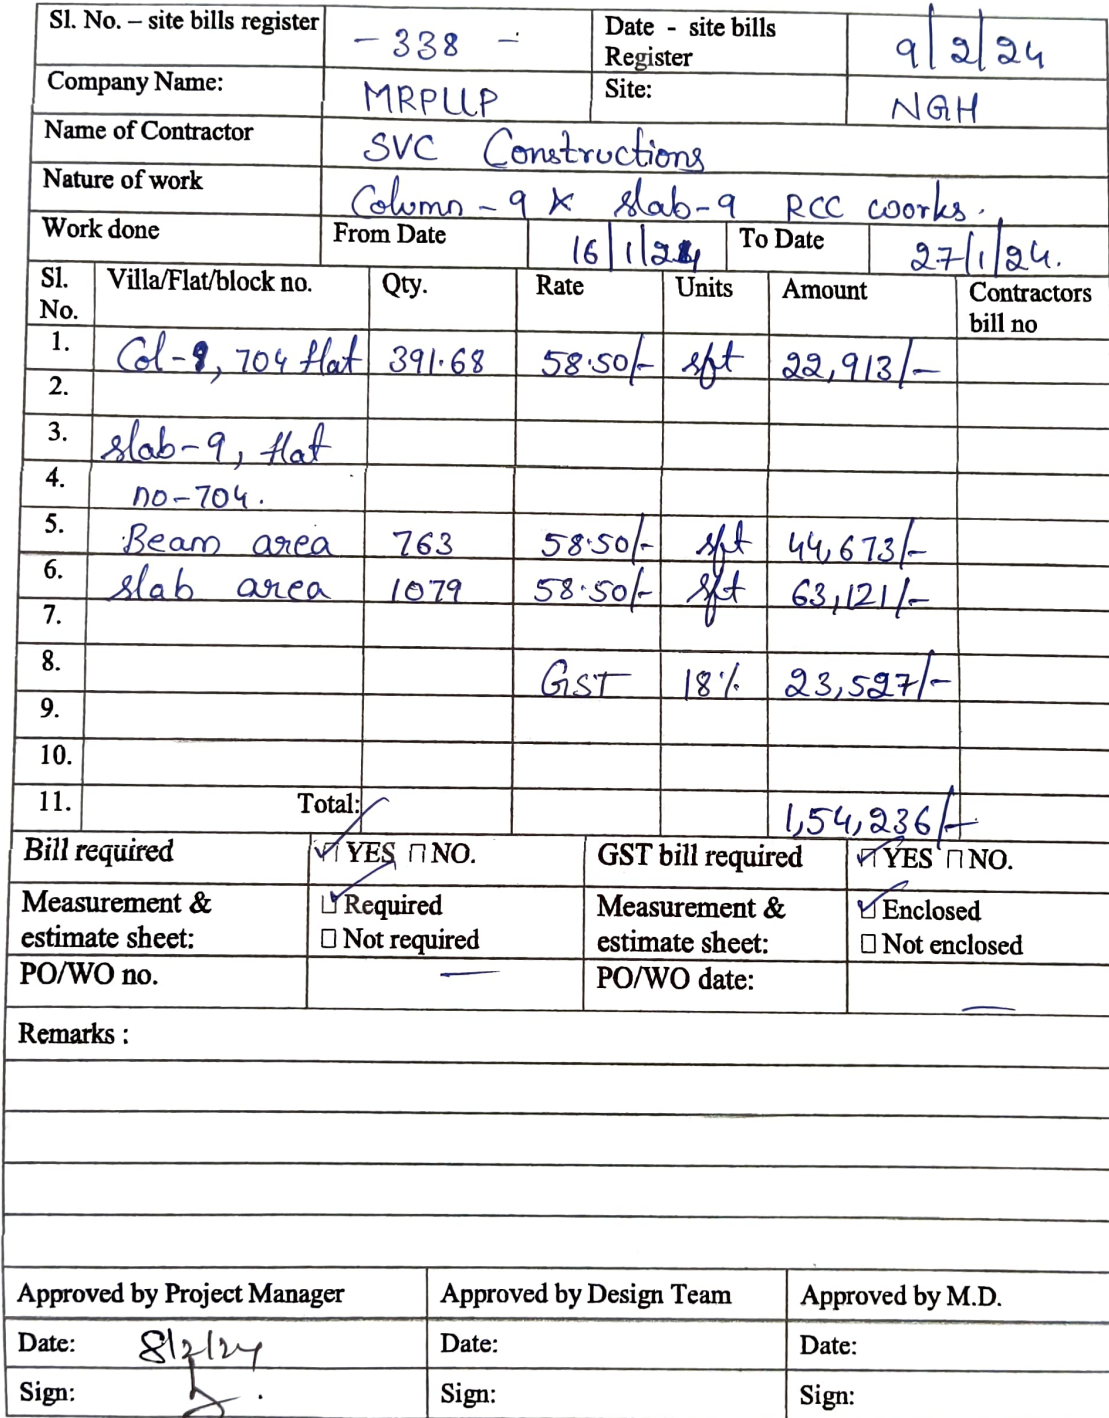 Sl. No. – site bills register - 338 - Date - site bills Register 9/2/24
Company Name: MRPLLP Site: NGH
Name of Contractor SVC Constructions
Nature of work Column-9 & slab-9 RCC works.
Work done From Date 16/1/24 To Date 27/1/24.
Sl. No. Villa/Flat/block no. Qty. Rate Units Amount Contractors bill no
1. Col-9, 704 flat 391.68 58.50/- sft 22,913/-
2.
3. slab-9, flat
4. no-704.
5. Beam area 763 58.50/- sft 44,673/-
6. slab area 1079 58.50/- sft 63,121/-
7.
8. GST 18% 23,527/-
9.
10.
11. Total: 1,54,236/-
Bill required YES NO. GST bill required YES NO.
Measurement & estimate sheet: Required Not required Measurement & estimate sheet: Enclosed Not enclosed
PO/WO no. — PO/WO date: —
Remarks :
Approved by Project Manager Approved by Design Team Approved by M.D.
Date: 8/2/24 Date: Date:
Sign: Sign: Sign: